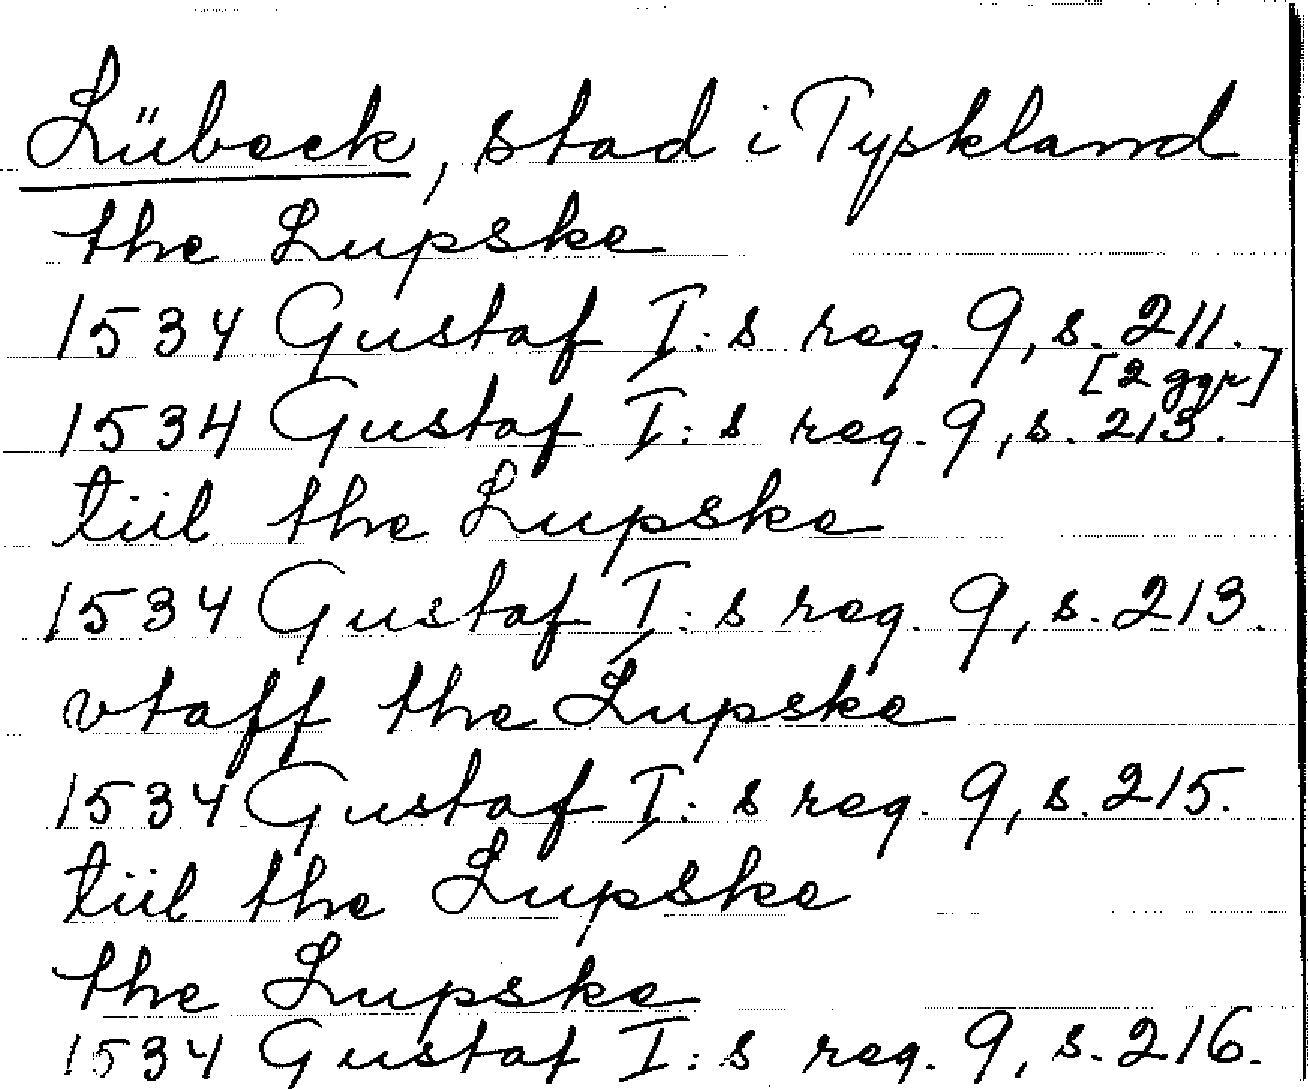 Lübeck, stad i Tyskland
the Lupske
1534 Gustaf I:s reg. 9, s. 211.
[2 ggr]
1534 Gustaf I:s reg. 9, s. 213.
tiil the Lupske
1534 Gustaf I:s reg. 9, s. 213.
vtaff the Lupske
1534 Gustaf I:s reg. 9, s. 215.
tiil the Lupske
the Lupske
1534 Gustaf I:s reg. 9, s. 216.